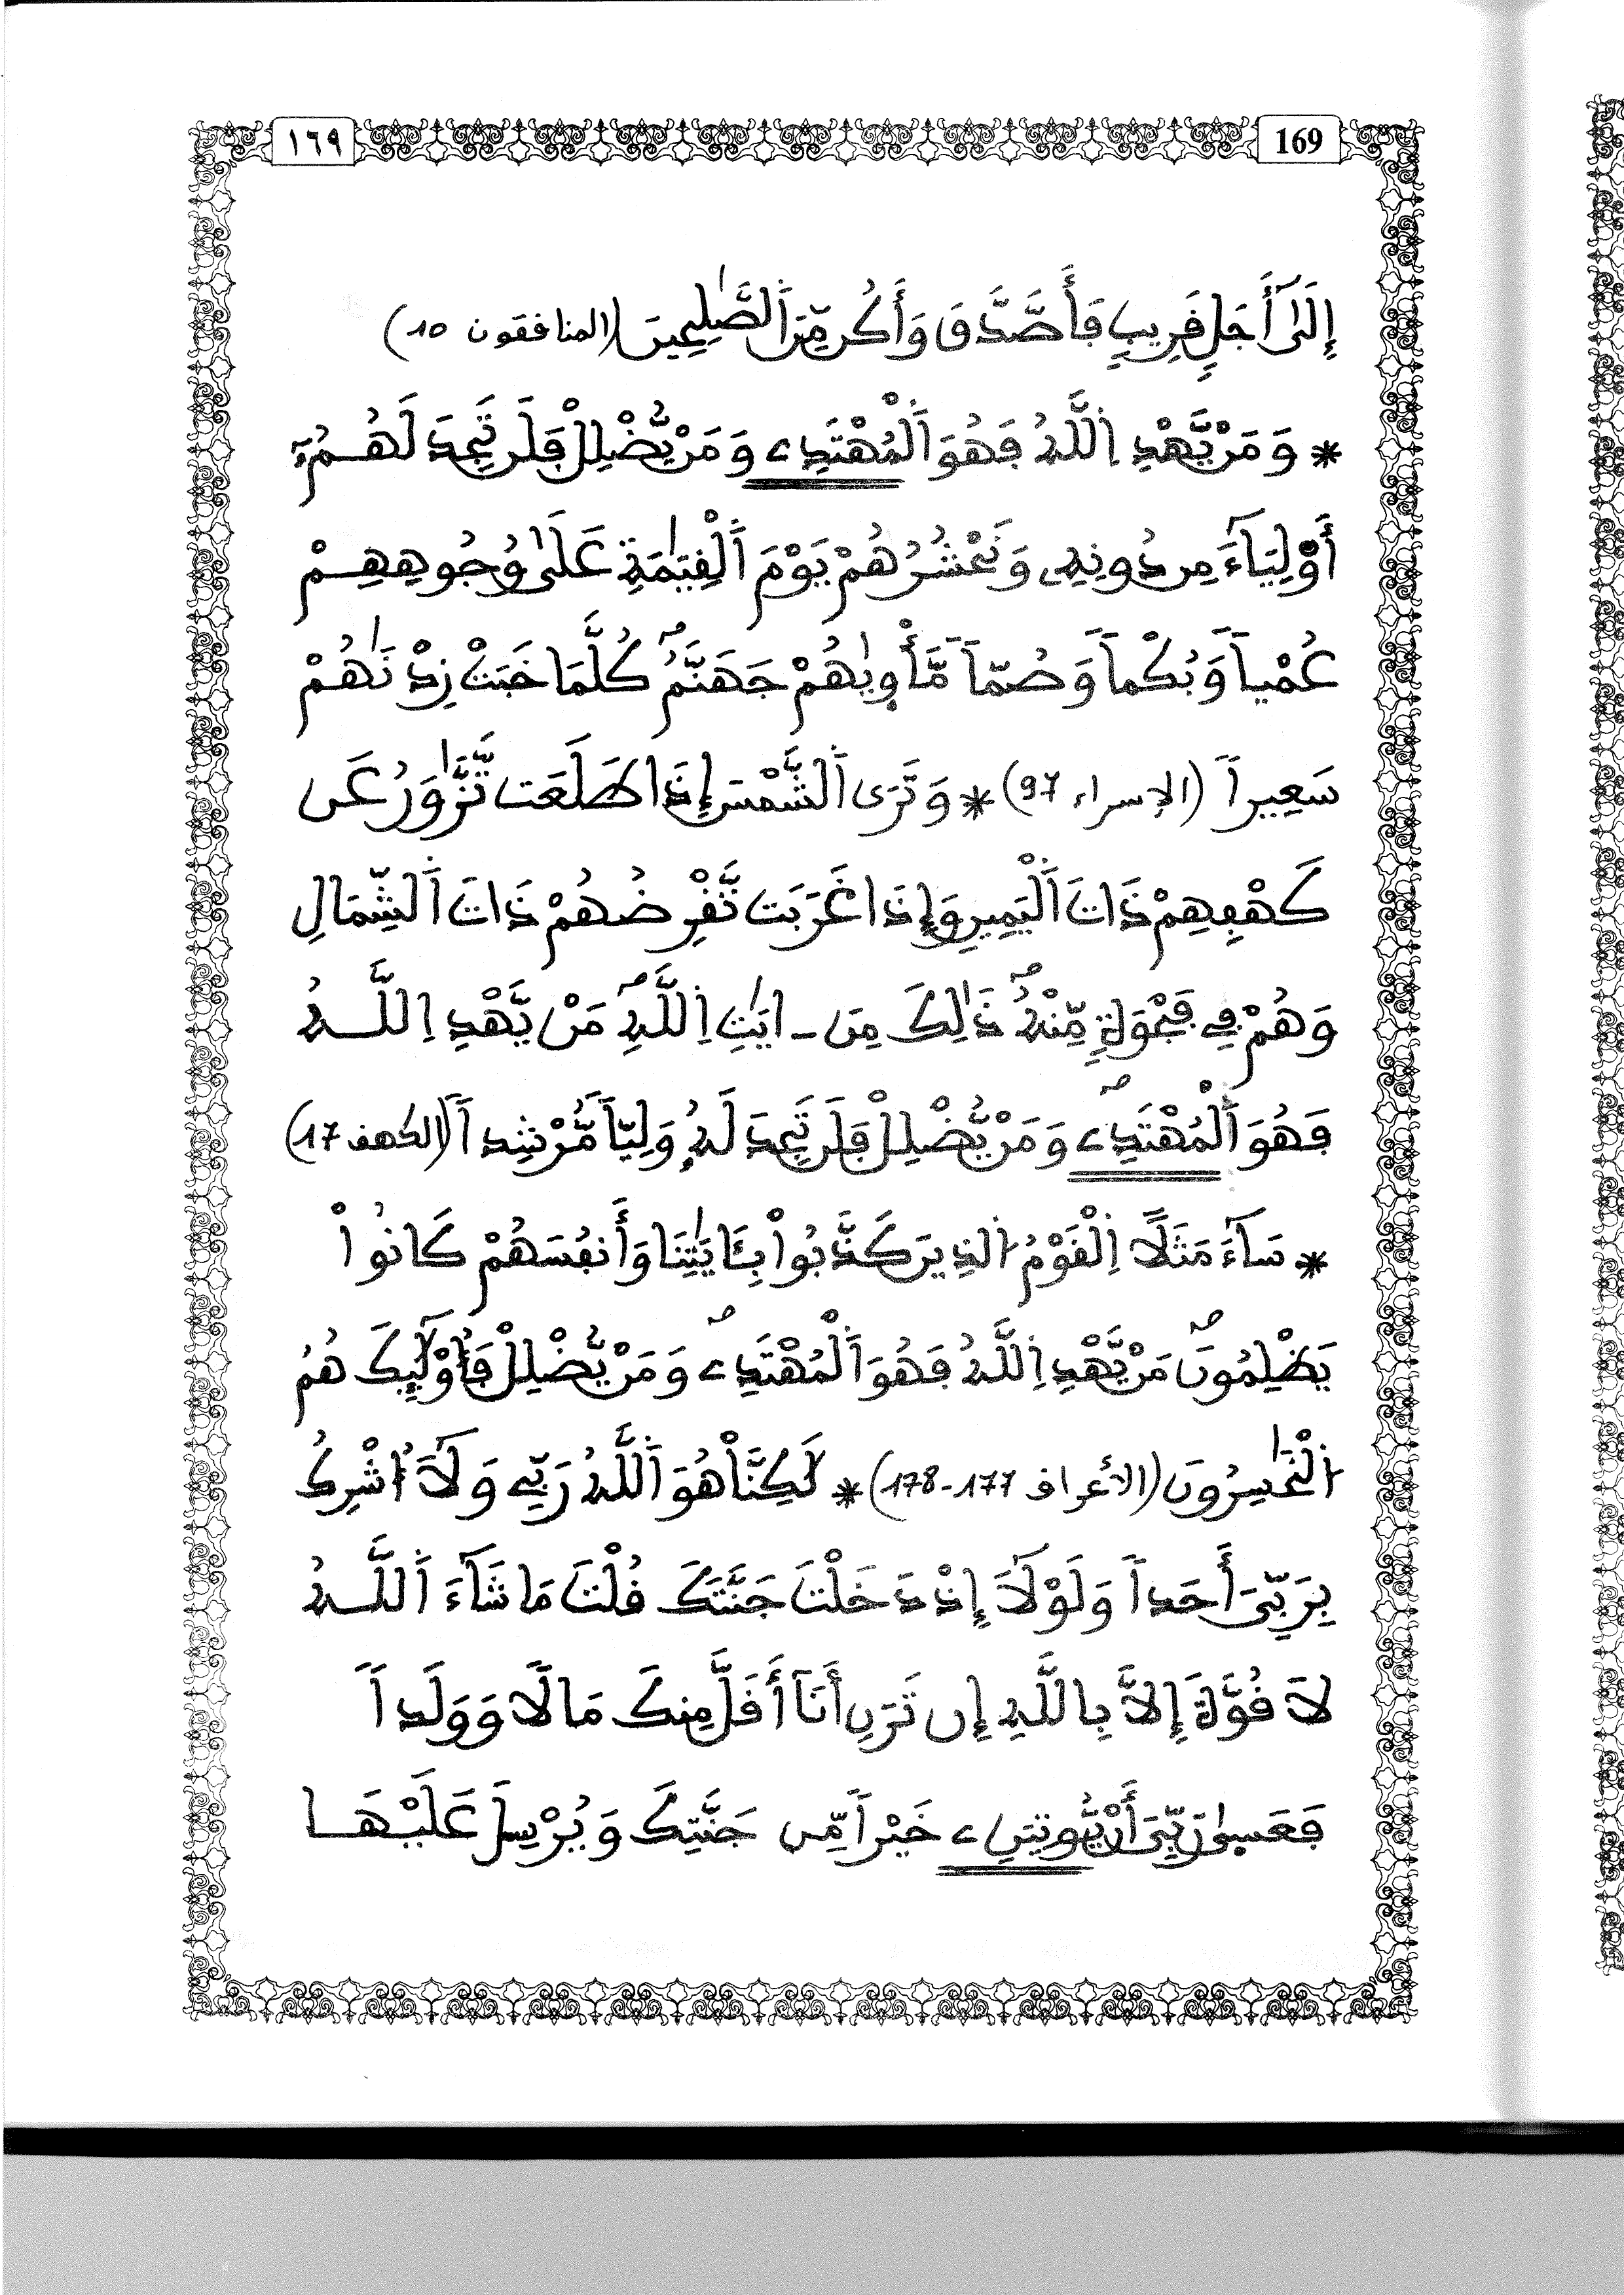 ١٦٩ 169
إِلَىٰٓ أَجَلٍ قَرِيبٍ فَأَصَّدَّقَ وَأَكُن مِّنَ اَ۬لصَّٰلِحِينَ (المنافقون 10)
* وَمَنْ يَّهْدِ اِ۬للَّهُ فَهُوَ اَ۬لْمُهْتَدِۦ وَمَنْ يُّضْلِلْ فَلَن تَجِدَ لَهُمُۥٓ
أَوْلِيَآءَ مِن دُونِهِۦ وَنَحْشُرُهُمْ يَوْمَ اَ۬لْقِيَٰمَةِ عَلَىٰ وُجُوهِهِمْ
عُمْياً وَبُكْماً وَصُمّاً مَّأْوۭىٰهُمْ جَهَنَّمُۖ كُلَّمَا خَبَتْ زِدْنَٰهُمْ
سَعِيراً (الإسراء 97) * وَتَرَى اَ۬لشَّمْسَ إِذَا طَلَعَت تَّزَّٰوَرُ عَن
كَهْفِهِمْ ذَاتَ اَ۬لْيَمِينِ وَإِذَا غَرَبَت تَّقْرِضُهُمْ ذَاتَ اَ۬لشِّمَالِ
وَهُمْ فِي فَجْوَةٍ مِّنْهُۖ ذَٰلِكَ مِنَ ـ اٰيَٰتِ اِ۬للَّهِۖ مَنْ يَّهْدِ اِ۬للَّهُ
فَهُوَ اَ۬لْمُهْتَدِۦۖ وَمَنْ يُّضْلِلْ فَلَن تَجِدَ لَهُۥ وَلِيّاً مُّرْشِداً (الكهف 17)
* سَآءَ مَثَلًا اِ۬لْقَوْمُ اُ۬لذِينَ كَذَّبُواْ بِـَٔايَٰتِنَا وَأَنفُسَهُمْ كَانُواْ
يَظْلِمُونَۖ مَنْ يَّهْدِ اِ۬للَّهُ فَهُوَ اَ۬لْمُهْتَدِےۖ وَمَنْ يُّضْلِلْ فَأُوْلَٰٓئِكَ هُمُ
اُ۬لْخَٰسِرُونَ (الأعراف 177-178) * لَّٰكِنَّاْ هُوَ اَ۬للَّهُ رَبِّے وَلَآ أُشْرِكُ
بِرَبِّيَ أَحَداً وَلَوْلَآ إِذْ دَخَلْتَ جَنَّتَكَ قُلْتَ مَا شَآءَ اَ۬للَّهُ
لَا قُوَّةَ إِلَّا بِاللَّهِ إِن تَرَنِ أَنَآ أَقَلَّ مِنكَ مَالًا وَوَلَداً
فَعَسۭىٰ رَبِّيَ أَنْ يُّوتِيَنِۦ خَيْراً مِّن جَنَّتِكَ وَيُرْسِلَ عَلَيْهَا